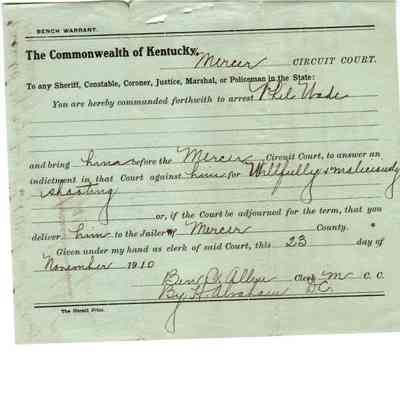 BENCH WARRANT.
The Commonwealth of Kentucky,
Mercer CIRCUIT COURT.
To any Sheriff, Constable, Coroner, Justice, Marshal, or Policeman in the State:
You are hereby commanded forthwith to arrest Phil Wade
and bring him before the Mercer Circuit Court, to answer an
indictment in that Court against him for Willfully & maliciously
shooting
or, if the Court be adjourned for the term, that you
deliver him to the Jailer of Mercer County.
Given under my hand as clerk of said Court, this 23 day of
November 1910
Ben C. Allin Clerk M C. C.
By H. Abraham D.C.
The Herald Print.